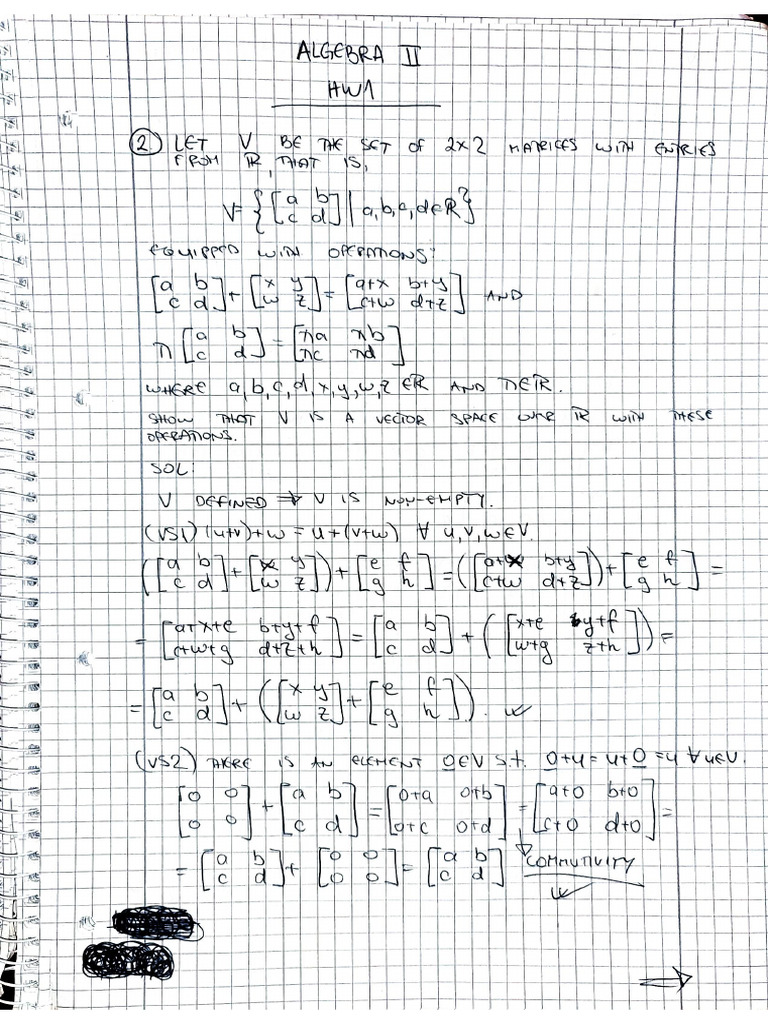 ALGEBRA II
HW1
② LET V BE THE SET OF 2x2 MATRICES WITH ENTRIES
FROM ℝ, THAT IS,
V = { [a b; c d] | a,b,c,d ∈ ℝ }
EQUIPPED WITH OPERATIONS:
[a b; c d] + [x y; w z] = [a+x b+y; c+w d+z] AND
π [a b; c d] = [πa πb; πc πd]
WHERE a,b,c,d,x,y,w,z ∈ ℝ AND π ∈ ℝ.
SHOW THAT V IS A VECTOR SPACE OVER ℝ WITH THESE
OPERATIONS.
SOL:
V DEFINED ⇒ V IS NON-EMPTY.
(VS1) (u+v)+w = u+(v+w) ∀ u,v,w∈V.
([a b; c d] + [x y; w z]) + [e f; g h] = ([a+x b+y; c+w d+z]) + [e f; g h] =
= [a+x+e b+y+f; c+w+g d+z+h] = [a b; c d] + ([x+e y+f; w+g z+h]) =
= [a b; c d] + ([x y; w z] + [e f; g h]).
(VS2) THERE IS AN ELEMENT 0∈V s.t. 0+u = u+0 = u ∀u∈V.
[0 0; 0 0] + [a b; c d] = [0+a 0+b; 0+c 0+d] = [a+0 b+0; c+0 d+0] =
= [a b; c d] + [0 0; 0 0] = [a b; c d] COMMUTIVITY
⇒